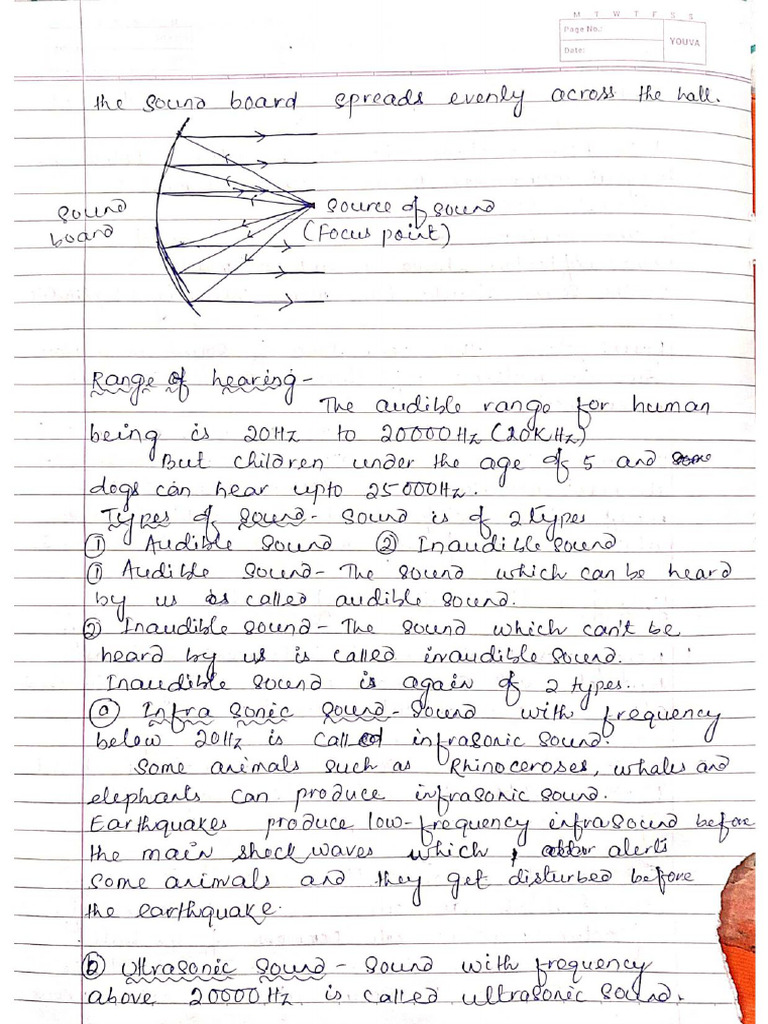 M T W T F S S
Page No.:
YOUVA
Date:
the sound board spreads evenly across the hall.
sound board
source of sound
(Focus point)
Range of hearing-
The audible range for human
being is 20Hz to 20000Hz (20KHz)
But children under the age of 5 and
dogs can hear upto 25000Hz.
Types of sound- Sound is of 2 types
① Audible sound ② Inaudible sound
① Audible sound- The sound which can be heard
by us is called audible sound.
② Inaudible sound- The sound which can't be
heard by us is called inaudible sound.
Inaudible sound is again of 2 types.
ⓐ Infra sonic sound- Sound with frequency
below 20Hz is called infrasonic sound.
Some animals such as Rhinoceroses, whales and
elephants can produce infrasonic sound.
Earthquakes produce low-frequency infrasound before
the main shock waves which alerts
some animals and they get disturbed before
the earthquake.
ⓑ Ultrasonic sound- sound with frequency
above 20000Hz is called ultrasonic sound.